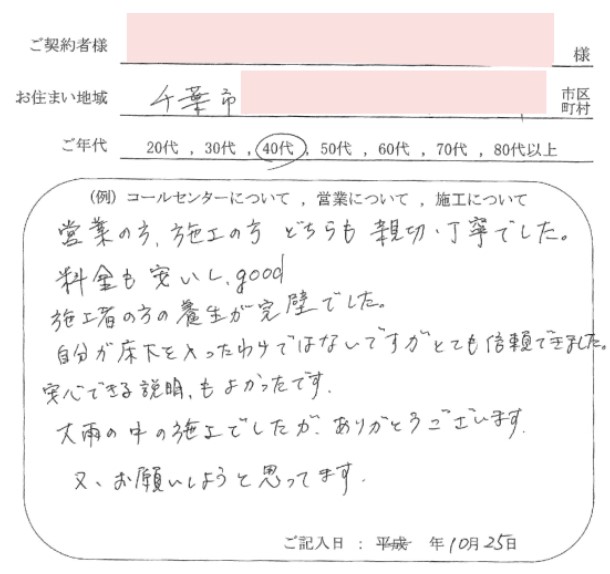 ご契約者様 様
お住まい地域 千葉市 市区町村
ご年代 20代 , 30代 , 40代 , 50代 , 60代 , 70代 , 80代以上
(例) コールセンターについて , 営業について , 施工について
営業の方、施工の方 どちらも 親切・丁寧でした。
料金も安いし、good
施工者の方の養生が完壁でした。
自分が床下を入ったわけではないですがとても信頼できました。
安心できる説明、もよかったです。
大雨の中の施工でしたが、ありがとうございます。
又、お願いしようと思ってます。
ご記入日 : 平成 年10月25日